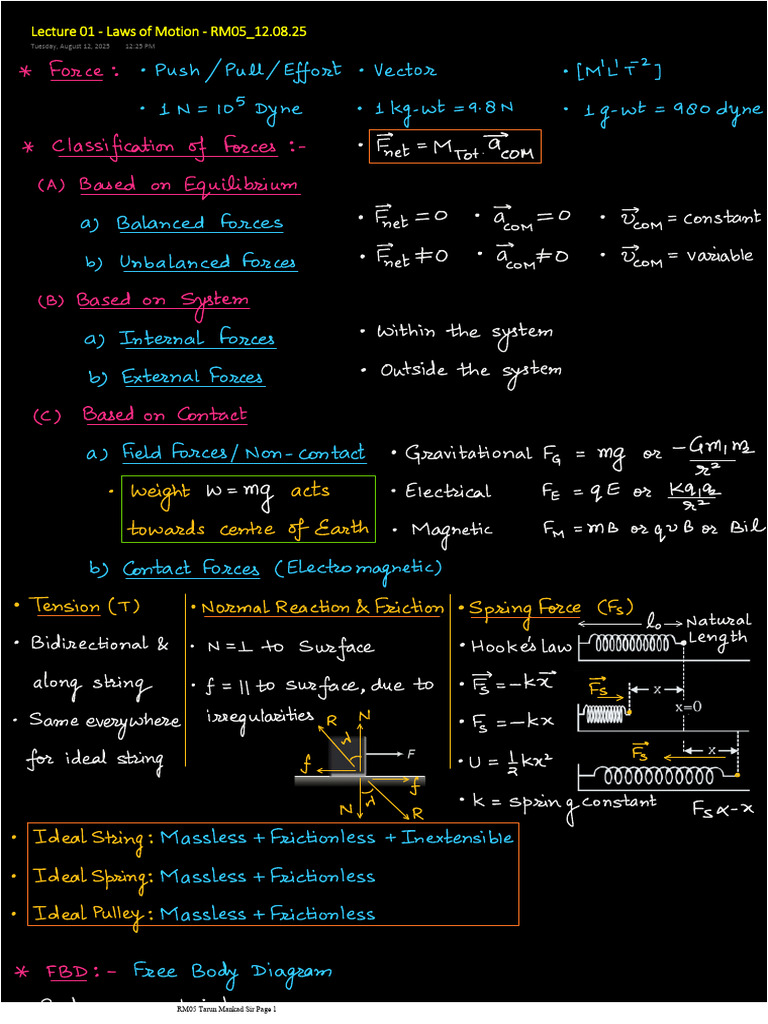 Lecture 01 - Laws of Motion - RM05_12.08.25
Tuesday, August 12, 2025 12:25 PM
* Force : • Push / Pull / Effort • Vector • [M¹L¹T⁻²]
• 1 N = 10⁵ Dyne • 1 kg-wt = 9.8 N • 1 g-wt = 980 dyne
* Classification of Forces :- • F⃗net = MTot. a⃗COM
(A) Based on Equilibrium
a) Balanced Forces • F⃗net = 0 • a⃗COM = 0 • v⃗COM = constant
b) Unbalanced Forces • F⃗net ≠ 0 • a⃗COM ≠ 0 • v⃗COM = variable
(B) Based on System
a) Internal Forces • Within the system
b) External Forces • Outside the system
(C) Based on Contact
a) Field Forces / Non-contact • Gravitational FG = mg or -Gm₁m₂/r²
• Weight W = mg acts • Electrical FE = qE or Kq₁q₂/r²
towards centre of Earth • Magnetic FM = mB or qvB or Bil
b) Contact Forces (Electromagnetic)
• Tension (T)
• Bidirectional &
along string
• Same everywhere
for ideal string
• Normal Reaction & Friction
• N = ⊥ to Surface
• f = || to surface, due to
irregularities
R N
λ
f F
f
N λ R
• Spring Force (Fs)
• Hooke's Law
• F⃗s = -kx⃗
• Fs = -kx
• U = 1/2 kx²
• k = spring constant
l₀ Natural
Length
F⃗s x
x=0
F⃗s x
Fs ∝ -x
• Ideal String : Massless + Frictionless + Inextensible
• Ideal Spring : Massless + Frictionless
• Ideal Pulley : Massless + Frictionless
* FBD :- Free Body Diagram
RM05 Tarun Mankad Sir Page 1